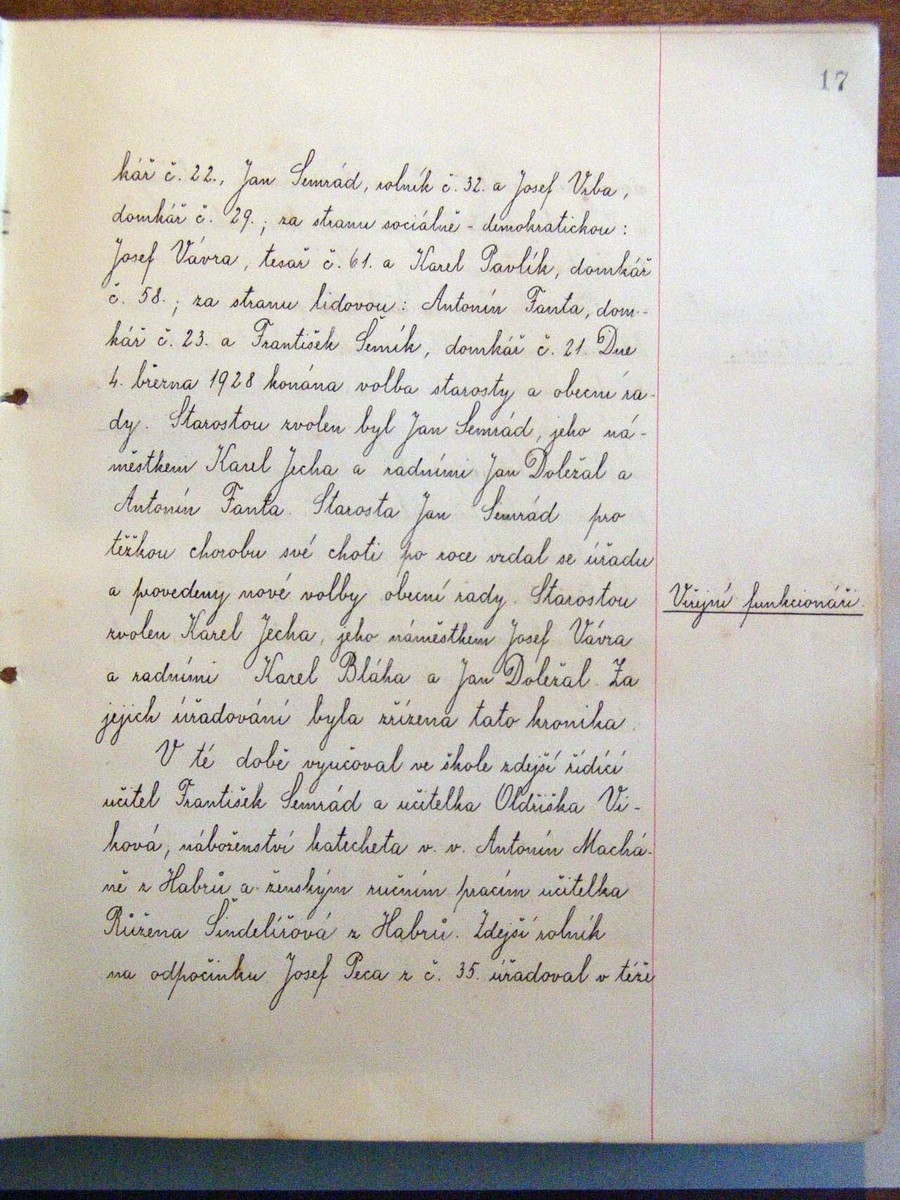 17
kář č. 22., Jan Semrád, rolník č. 32. a Josef Vrba,
domkář č. 29.; za stranu sociálně - demokratickou:
Josef Vávra, tesař č. 61. a Karel Pavlík, domkář
č. 58.; za stranu lidovou: Antonín Fanta, dom-
kář č. 23. a František Semík, domkář č. 21. Dne
4. března 1928 konána volba starosty a obecní ra-
dy. Starostou zvolen byl Jan Semrád, jeho ná-
městkem Karel Jecha a radními Jan Doležal a
Antonín Fanta. Starosta Jan Semrád pro
těžkou chorobu své choti po roce vzdal se úřadu
a provedeny nové volby obecní rady. Starostou
Veřejní funkcionáři.
zvolen Karel Jecha, jeho náměstkem Josef Vávra
a radními Karel Bláha a Jan Doležal. Za
jejich úřadování byla zřízena tato kronika.
V té době vyučoval ve škole zdejší řídící
učitel František Semrád a učitelka Oldřiška Vi-
ková, náboženství katecheta v. v. Antonín Machá-
ně z Habrů a ženským ručním pracím učitelka
Růžena Šindelířová z Habrů. Zdejší rolník
na odpočinku Josef Peca z č. 35. úřadoval v téže